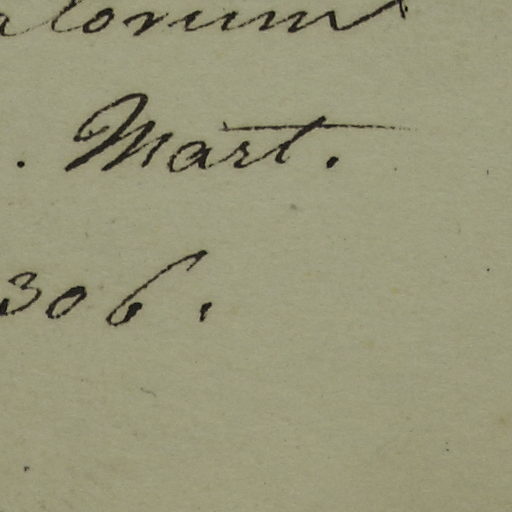 alorum
. Mart.
306.